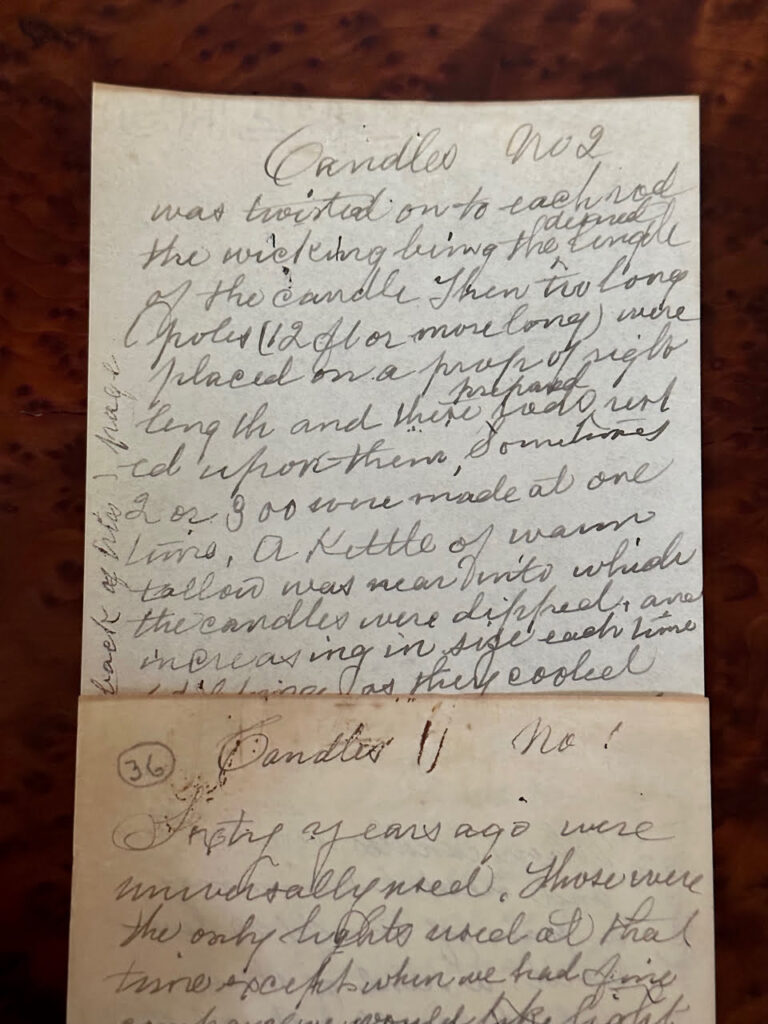 Candles No 2
was twisted on to each rod
desired
the wicking being the length
of the candle Then two long
poles (12 ft or more long) were
placed on a prop of right
prepared
length and these rods rest
ed upon them, Sometimes
2 or 300 were made at one
time, A Kettle of warm
tallow was near into which
the candles were dipped, and
increasing in size each time
as they cooled
back of this page
36
Candles No 1
years ago were
universally used. Those were
the only lights used at that
time except when we had fine
we would light